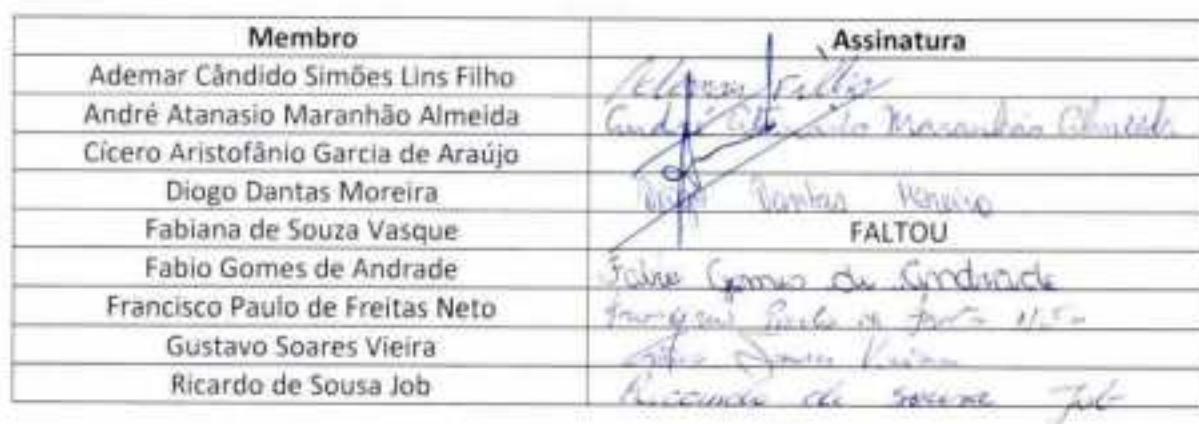 Membro Assinatura
Ademar Cândido Simões Lins Filho Filho
André Atanasio Maranhão Almeida André Atanasio Maranhão Almeida
Cícero Aristofânio Garcia de Araújo
Diogo Dantas Moreira Diogo Dantas Moreira
Fabiana de Souza Vasque FALTOU
Fabio Gomes de Andrade Fabio Gomes de Andrade
Francisco Paulo de Freitas Neto Paulo de
Gustavo Soares Vieira Soares Vieira
Ricardo de Sousa Job Ricardo de Sousa Job